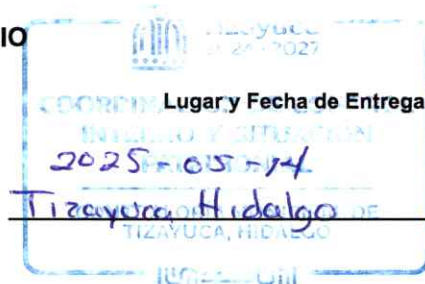 IO
Tizayuca
2024-2027
Lugar y Fecha de Entrega
INTERNO Y SITUACIÓN
2025-05-14
Tizayuca, Hidalgo DE
TIZAYUCA, HIDALGO